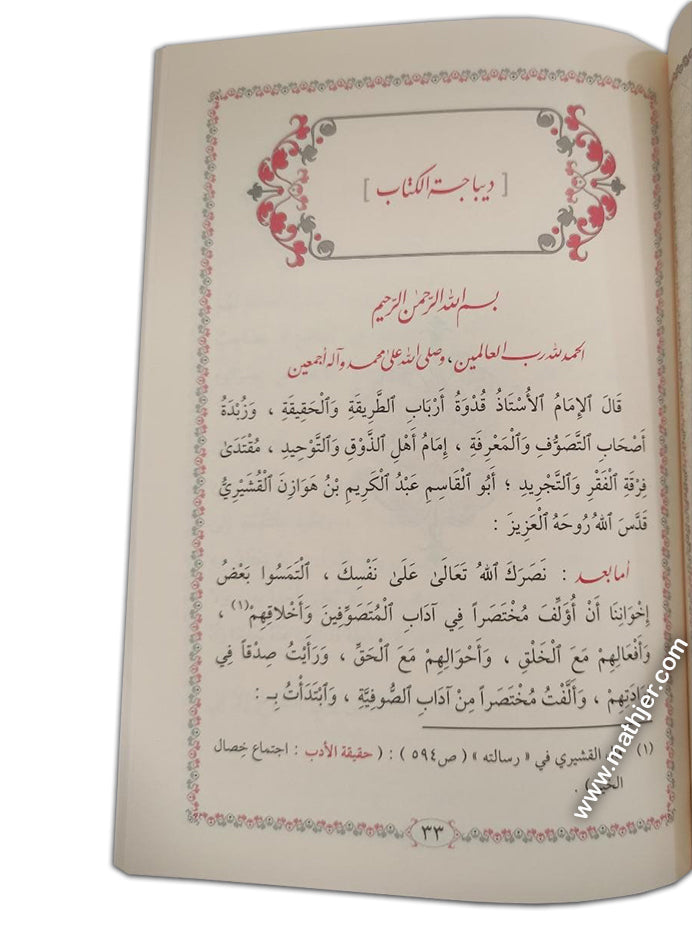 [ ديباجة الكتاب ]
بسم الله الرحمن الرحيم
الحمد لله رب العالمين ، وصلى الله على محمد وآله أجمعين
قَالَ ٱلإِمَامُ ٱلأُسْتَاذُ قُدْوَةُ أَرْبَابِ ٱلطَّرِيقَةِ وَٱلْحَقِيقَةِ ، وَزُبْدَةُ
أَصْحَابِ ٱلتَّصَوُّفِ وَٱلْمَعْرِفَةِ ، إِمَامُ أَهْلِ ٱلذَّوْقِ وَٱلتَّوْحِيدِ ، مُقْتَدَىٰ
فِرْقَةِ ٱلْفَقْرِ وَٱلتَّجْرِيدِ ؛ أَبُو ٱلْقَاسِمِ عَبْدُ ٱلْكَرِيمِ بْنُ هَوَازِنَ ٱلْقُشَيْرِيُّ
قَدَّسَ ٱللهُ رُوحَهُ ٱلْعَزِيزَ :
أما بعد : نَصَرَكَ ٱللهُ تَعَالَىٰ عَلَىٰ نَفْسِكَ ، ٱلْتَمَسُوا بَعْضُ
إِخْوَانِنَا أَنْ أُؤَلِّفَ مُخْتَصَراً فِي آدَابِ ٱلْمُتَصَوِّفِينَ وَأَخْلَاقِهِمْ(١) ،
وَأَفْعَالِهِمْ مَعَ ٱلْخَلْقِ ، وَأَحْوَالِهِمْ مَعَ ٱلْحَقِّ ، وَرَأَيْتُ صِدْقاً فِي
، وَأَلَّفْتُ مُخْتَصَراً مِنْ آدَابِ ٱلصُّوفِيَّةِ ، وَٱبْتَدَأْتُ بِـ :
(١) القشيري في « رسالته » ( ص٥٩٤ ) : ( حقيقة الأدب : اجتماع خِصال
) .
٣٣
www.mathjer.com